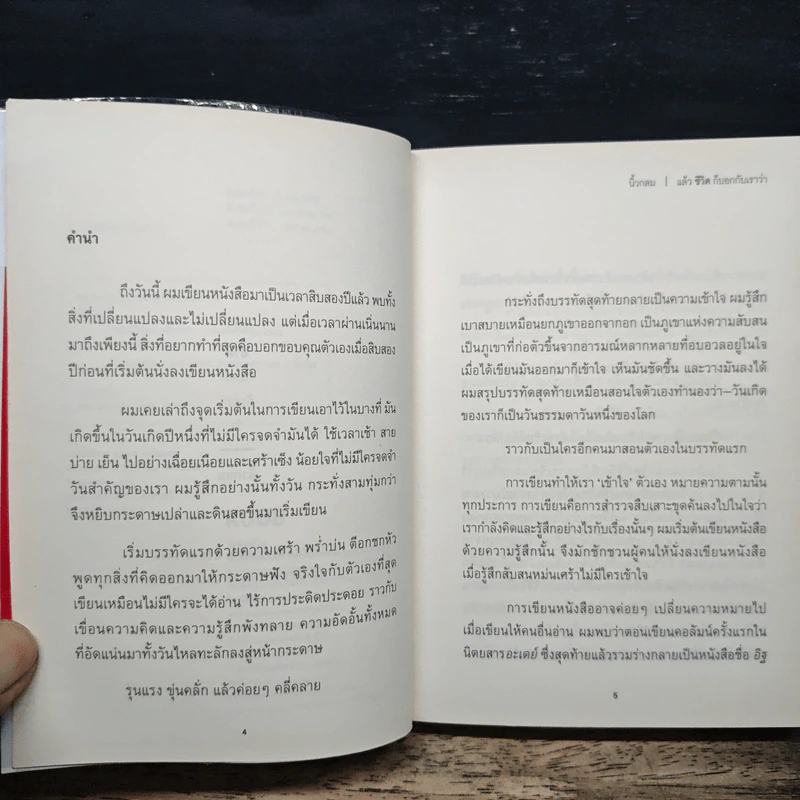 คำนำ
ถึงวันนี้ ผมเขียนหนังสือมาเป็นเวลาสิบสองปีแล้ว พบทั้ง
สิ่งที่เปลี่ยนแปลงและไม่เปลี่ยนแปลง แต่เมื่อเวลาผ่านเนิ่นนาน
มาถึงเพียงนี้ สิ่งที่อยากทำที่สุดคือบอกขอบคุณตัวเองเมื่อสิบสอง
ปีก่อนที่เริ่มต้นนั่งลงเขียนหนังสือ
ผมเคยเล่าถึงจุดเริ่มต้นในการเขียนเอาไว้ในบางที่ มัน
เกิดขึ้นในวันเกิดปีหนึ่งที่ไม่มีใครจดจำมันได้ ใช้เวลาเช้า สาย
บ่าย เย็น ไปอย่างเฉื่อยเนือยและเศร้าเซ็ง น้อยใจที่ไม่มีใครจดจำ
วันสำคัญของเรา ผมรู้สึกอย่างนั้นทั้งวัน กระทั่งสามทุ่มกว่า
จึงหยิบกระดาษเปล่าและดินสอขึ้นมาเริ่มเขียน
เริ่มบรรทัดแรกด้วยความเศร้า พร่ำบ่น ตีอกชกหัว
พูดทุกสิ่งที่คิดออกมาให้กระดาษฟัง จริงใจกับตัวเองที่สุด
เขียนเหมือนไม่มีใครจะได้อ่าน ไร้การประดิดประดอย ราวกับ
เขื่อนความคิดและความรู้สึกพังทลาย ความอัดอั้นทั้งหมด
ที่อัดแน่นมาทั้งวันไหลทะลักลงสู่หน้ากระดาษ
รุนแรง ขุ่นคลั่ก แล้วค่อยๆ คลี่คลาย
4
นิ้วกลม | แล้ว ชีวิต ก็บอกกับเราว่า
กระทั่งถึงบรรทัดสุดท้ายกลายเป็นความเข้าใจ ผมรู้สึก
เบาสบายเหมือนยกภูเขาออกจากอก เป็นภูเขาแห่งความสับสน
เป็นภูเขาที่ก่อตัวขึ้นจากอารมณ์หลากหลายที่อบอวลอยู่ในใจ
เมื่อได้เขียนมันออกมาก็เข้าใจ เห็นมันชัดขึ้น และวางมันลงได้
ผมสรุปบรรทัดสุดท้ายเหมือนสอนใจตัวเองทำนองว่า–วันเกิด
ของเราก็เป็นวันธรรมดาวันหนึ่งของโลก
ราวกับเป็นใครอีกคนมาสอนตัวเองในบรรทัดแรก
การเขียนทำให้เรา ‘เข้าใจ’ ตัวเอง หมายความตามนั้น
ทุกประการ การเขียนคือการสำรวจสืบเสาะขุดค้นลงไปในใจว่า
เรากำลังคิดและรู้สึกอย่างไรกับเรื่องนั้นๆ ผมเริ่มต้นเขียนหนังสือ
ด้วยความรู้สึกนั้น จึงมักชักชวนผู้คนให้นั่งลงเขียนหนังสือ
เมื่อรู้สึกสับสนหม่นเศร้าไม่มีใครเข้าใจ
การเขียนหนังสืออาจค่อยๆ เปลี่ยนความหมายไป
เมื่อเขียนให้คนอื่นอ่าน ผมพบว่าตอนเขียนคอลัมน์ครั้งแรกใน
นิตยสารอะเดย์ ซึ่งสุดท้ายแล้วรวมร่างกลายเป็นหนังสือชื่อ อิฐ
5